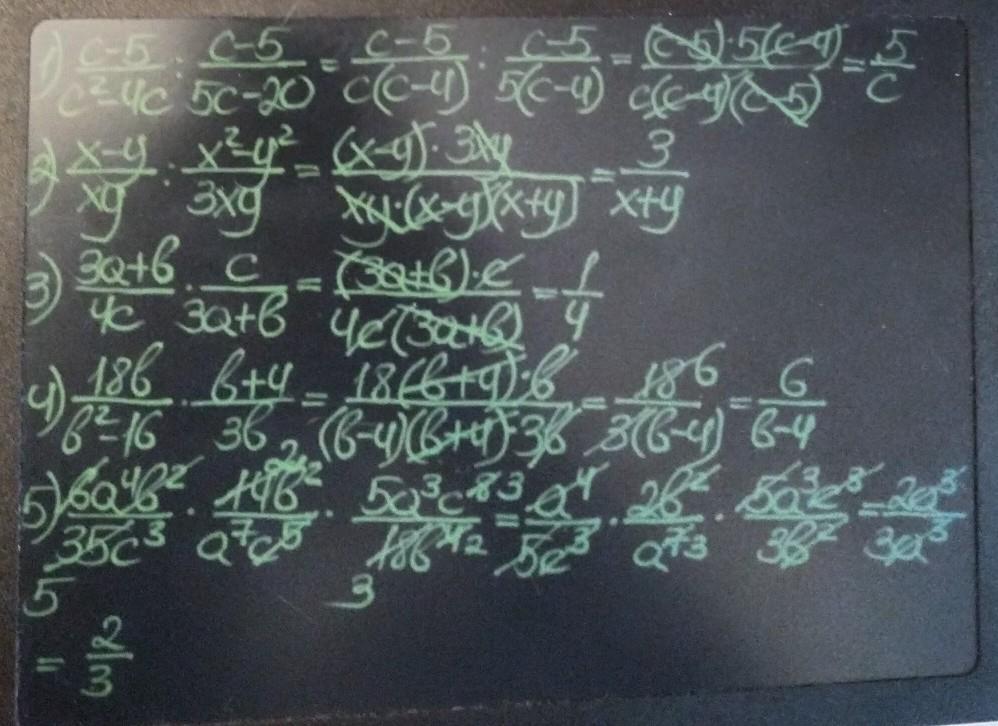 1) (c-5)/(c²-4c) : (c-5)/(5c-20) = (c-5)/(c(c-4)) : (c-5)/(5(c-4)) = ((c-5)·5(c-4))/(c(c-4)(c-5)) = 5/c
2) (x-y)/(xy) : (x²-y²)/(3xy) = ((x-y)·3xy)/(xy·(x-y)(x+y)) = 3/(x+y)
3) (3a+b)/(4c) · c/(3a+b) = ((3a+b)·c)/(4c(3a+b)) = 1/4
4) (18b)/(b²-16) · (b+4)/(3b) = (18(b+4)·b)/((b-4)(b+4)·3b) = (18 6)/(3(b-4)) = 6/(b-4)
5) (6a⁴b²)/(35c³) · (14b² 2)/(a⁷c⁵) · (5a³c⁸ 3)/(18b⁴ 2) = a⁴/(5c³) · (2b²)/(a⁷ 3) · (5a³c³)/(3b²) = (2a³)/(3a³)
5 3
= 2/3